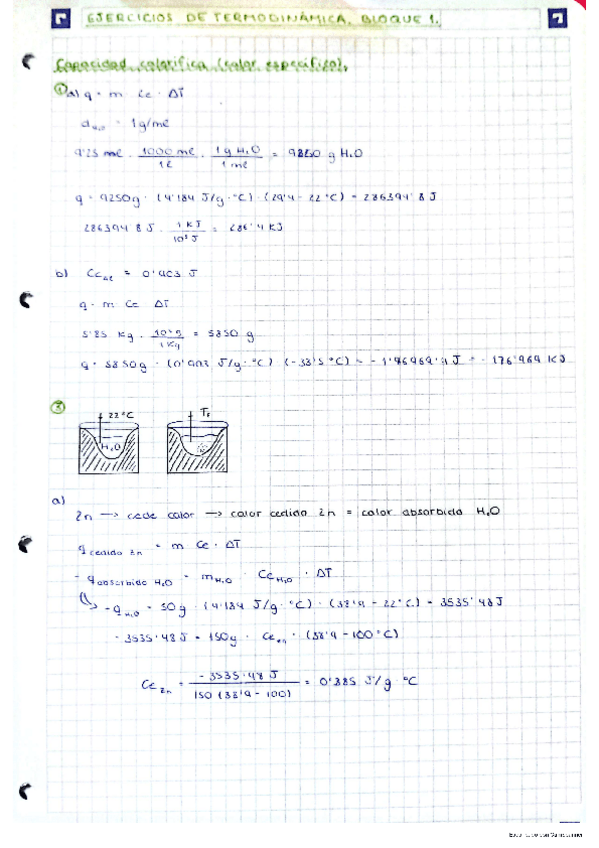 EJERCICIOS DE TERMODINÁMICA. BLOQUE 1.
Capacidad calorífica (calor específico).
① a) q = m · Ce · ΔT
d H₂O = 1g/ml
9'25 ml · 1000 ml / 1 l · 1 g H₂O / 1 ml = 9250 g H₂O
q = 9250g · (4'184 J/g·°C) · (29'4 - 22°C) = 286394'8 J
286394'8 J · 1 KJ / 10³ J = 286'4 KJ
b) Ce Al = 0'903 J
q = m · Ce · ΔT
5'85 Kg · 10³ g / 1 Kg = 5850 g
q = 5850g · (0'903 J/g·°C) · (-33'5 °C) =
= - 176'969 KJ
③
22°C
T_F
H₂O
a)
Zn → cede calor → calor cedido Zn = calor absorbido H₂O
q cedido Zn = m · Ce · ΔT
- q absorbido H₂O = m H₂O · Ce H₂O · ΔT
-q H₂O = 50g · (4'184 J/g·°C) · (38'9 - 22°C) = 3535'48J
- 3535'48J = 150g · Ce Zn · (38'9 - 100°C)
Ce Zn = - 3535'48 J / 150 (38'9 - 100) = 0'385 J/g·°C